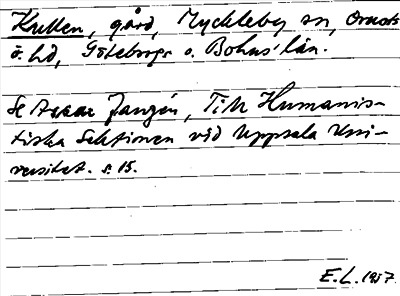 Kretten, gård, Myckleby sn, Orusts
ö. hd, Göteborgs o. Bohus' län.
Se Assar Janzén, Till Humanis-
tiska Sektionen vid Uppsala Uni-
versitet. s. 15.
E.L. 1957